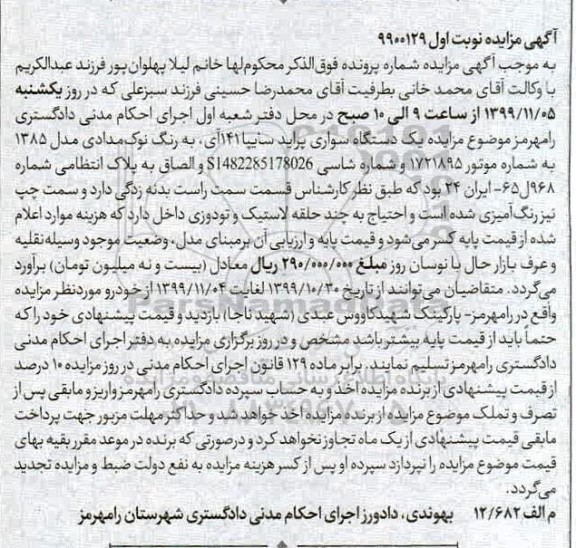 آگهی مزایده نوبت اول ۹۹۰۰۱۲۹
به موجب آگهی مزایده شماره پرونده فوق‌الذکر محکوم‌لها خانم لیلا پهلوان‌پور فرزند عبدالکریم
با وکالت آقای محمد خانی بطرفیت آقای محمدرضا حسینی فرزند سبزعلی که در روز یکشنبه
۱۳۹۹/۱۱/۰۵ از ساعت ۹ الی ۱۰ صبح در محل دفتر شعبه اول اجرای احکام مدنی دادگستری
رامهرمز موضوع مزایده یک دستگاه سواری پراید سایپا۱۴۱آی، به رنگ نوک‌مدادی مدل ۱۳۸۵
به شماره موتور ۱۷۲۱۸۹۵ و شماره شاسی S1482285178026 و الصاق به پلاک انتظامی شماره
۹۶۸ل۶۵- ایران ۲۴ بود که طبق نظر کارشناس قسمت سمت راست بدنه زدگی دارد و سمت چپ
نیز رنگ‌آمیزی شده است و احتیاج به چند حلقه لاستیک و تودوزی داخل دارد که هزینه موارد اعلام
شده از قیمت پایه کسر می‌شود و قیمت پایه و ارزیابی آن برمبنای مدل، وضعیت موجود وسیله‌نقلیه
و عرف بازار حال با نوسان روز مبلغ ۲۹۰/۰۰۰/۰۰۰ ریال معادل (بیست و نه میلیون تومان) برآورد
می‌گردد. متقاضیان می‌توانند از تاریخ ۱۳۹۹/۱۰/۳۰ لغایت ۱۳۹۹/۱۱/۰۴ از خودرو موردنظر مزایده
واقع در رامهرمز- پارکینگ شهیدکاووس عبدی (شهید ناجا) بازدید و قیمت پیشنهادی خود را که
حتماً باید از قیمت پایه بیشتر باشد مشخص و در روز برگزاری مزایده به دفتر اجرای احکام مدنی
دادگستری رامهرمز تسلیم نمایند. برابر ماده ۱۲۹ قانون اجرای احکام مدنی در روز مزایده ۱۰ درصد
از قیمت پیشنهادی از برنده مزایده اخذ و به حساب سپرده دادگستری رامهرمز واریز و مابقی پس از
تصرف و تملک موضوع مزایده از برنده مزایده اخذ خواهد شد و حداکثر مهلت مزبور جهت پرداخت
مابقی قیمت پیشنهادی از یک ماه تجاوز نخواهد کرد و درصورتی که برنده در موعد مقرر بقیه بهای
قیمت موضوع مزایده را نپردازد سپرده او پس از کسر هزینه مزایده به نفع دولت ضبط و مزایده تجدید
می‌گردد.
م الف ۱۲/۶۸۲ بهوندی، دادورز اجرای احکام مدنی دادگستری شهرستان رامهرمز
ParsNamadData